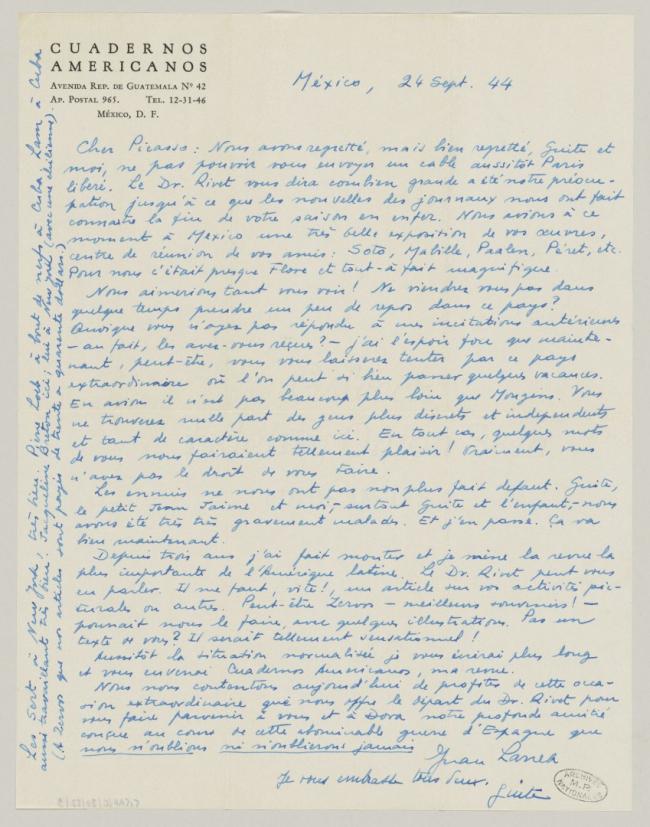 CUADERNOS
AMERICANOS
AVENIDA REP. DE GUATEMALA Nº 42
AP. POSTAL 965. TEL. 12-31-46
MÉXICO, D. F.
México, 24 Sept. 44
Cher Picasso: Nous avons regretté, mais bien regretté, Guite et
moi, ne pas pouvoir vous envoyer un cable aussitôt Paris
libéré. Le Dr. Rivet vous dira combien grande a été notre préocu-
pation jusqu'à ce que les nouvelles des journaux nous ont fait
connaitre la fin de votre saison en enfer. Nous avions à ce
moment à Mexico une très belle exposition de vos œuvres,
centre de réunion de vos amis: Soto, Mabille, Paalen, Péret, etc.
Pour nous c'était presque Flore et tout-à fait magnifique.
Nous aimerions tant vous voir! Ne viendrez vous pas dans
quelque temps prendre un peu de repos dans ce pays?
Quoique vous n'ayez pas répondu à mes incitations antérieures
– au fait, les avez-vous reçues? – j'ai l'espoir fixe que mainte-
nant, peut-être, vous vous laisserez tenter par ce pays
extraordinaire où l'on peut si bien passer quelques vacances.
En avion il n'est pas beaucoup plus loin que Mougins. Vous
ne trouverez nulle part des gens plus discrets et independents
et tant de caractère comme ici. En tout cas, quelques mots
de vous nous fairaient tellement plaisir! Vraiment, vous
n'avez pas le droit de vous taire.
Les ennuis ne nous ont pas non plus fait defaut. Guite,
le petit Jean Jaime et moi,– surtout Guite et l'enfant,– nous
avons été très très gravement malades. Et j'en passe. Ça va
bien maintenant.
Depuis trois ans j'ai fait monter et je mène la revue la
plus importante de l'Amérique latine. Le Dr. Rivet peut vous
en parler. Il me faut, vite!, un article sur vos activités pic-
turales ou autres. Peut-être Zervos – meilleurs souvenirs! –
pourrait nous le faire, avec quelques illustrations. Pas un
texte de vous? Il serait tellement sensationnel!
Aussitôt la situation normalisée je vous écrirai plus long
et vous enverrai Cuadernos Americanos, ma revue.
Nous nous contentons aujourd'hui de profiter de cette oca-
sion extraordinaire que nous offre le départ du Dr. Rivet pour
vous faire parvenir à vous et à Dora notre profonde amitié
conçue au cours de cette abominable guerre d'Espagne que
nous n'oublions ni n'oublierons jamais
Juan Larrea
Je vous embrasse tous deux.
Guite
Les Sert à New York, très bien. Pierre Loeb à bout de nerfs à Cuba. Lam, à Cuba
aussi travaillant très bien. Jacqueline Breton ici; lui à New York (avec une chilienne).
(A Zervos que nos articles sont payés de trente à quarante dollars.)
ARCHIVES
M.P.
NATIONALES